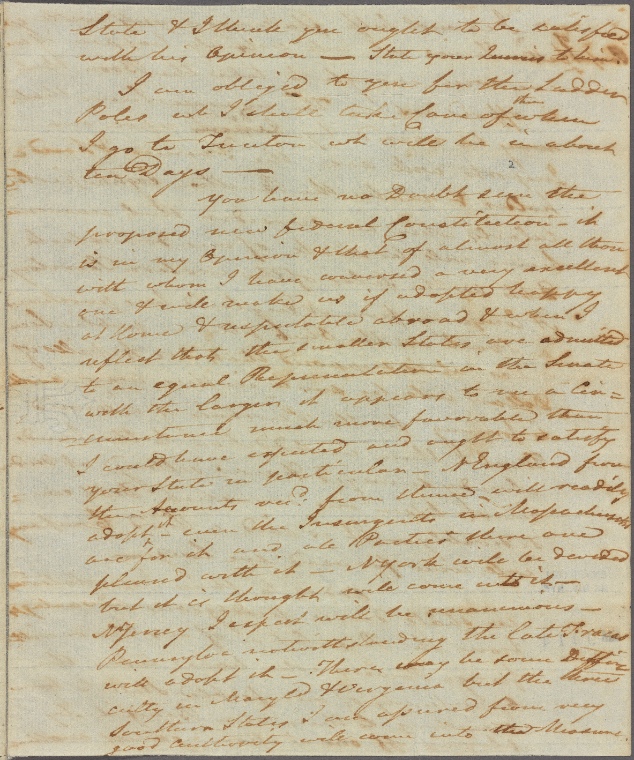 State & I think you ought to be satisfied
with his Opinion — State your to him.
I am obliged to you for the Ladder
Poles wh I shall take Care of when
the
I go to Trenton wh will be in about
2
ten Days —
You have no Doubt seen the
proposed new federal Constitution – it
is in my Opinion & that of almost all those
with whom I have conversed a very excellent
one & will make us if adopted happy
at Home & respectable abroad & when I
reflect that the smaller States are admitted
to an equal Representation in the Senate
with the larger it appears to me a Cir=
cumstance much more favorable than
I could have expected and ought to satisfy
your State in particular – N England from
the Accounts recd. from thence will readily
adopt it – even the Insurgents in Massachusetts
are for it and all Parties there are
pleased with it – N York will be devided
but it is thought will come into it –
N Jersey I expect will be unanimous –
Pennsylva notwithstanding the late Fracas
will adopt it – There may be some Diffi
culty in Maryld & Virginia but the three
Southern States I am assured from very
good Authority will come into the Measure.